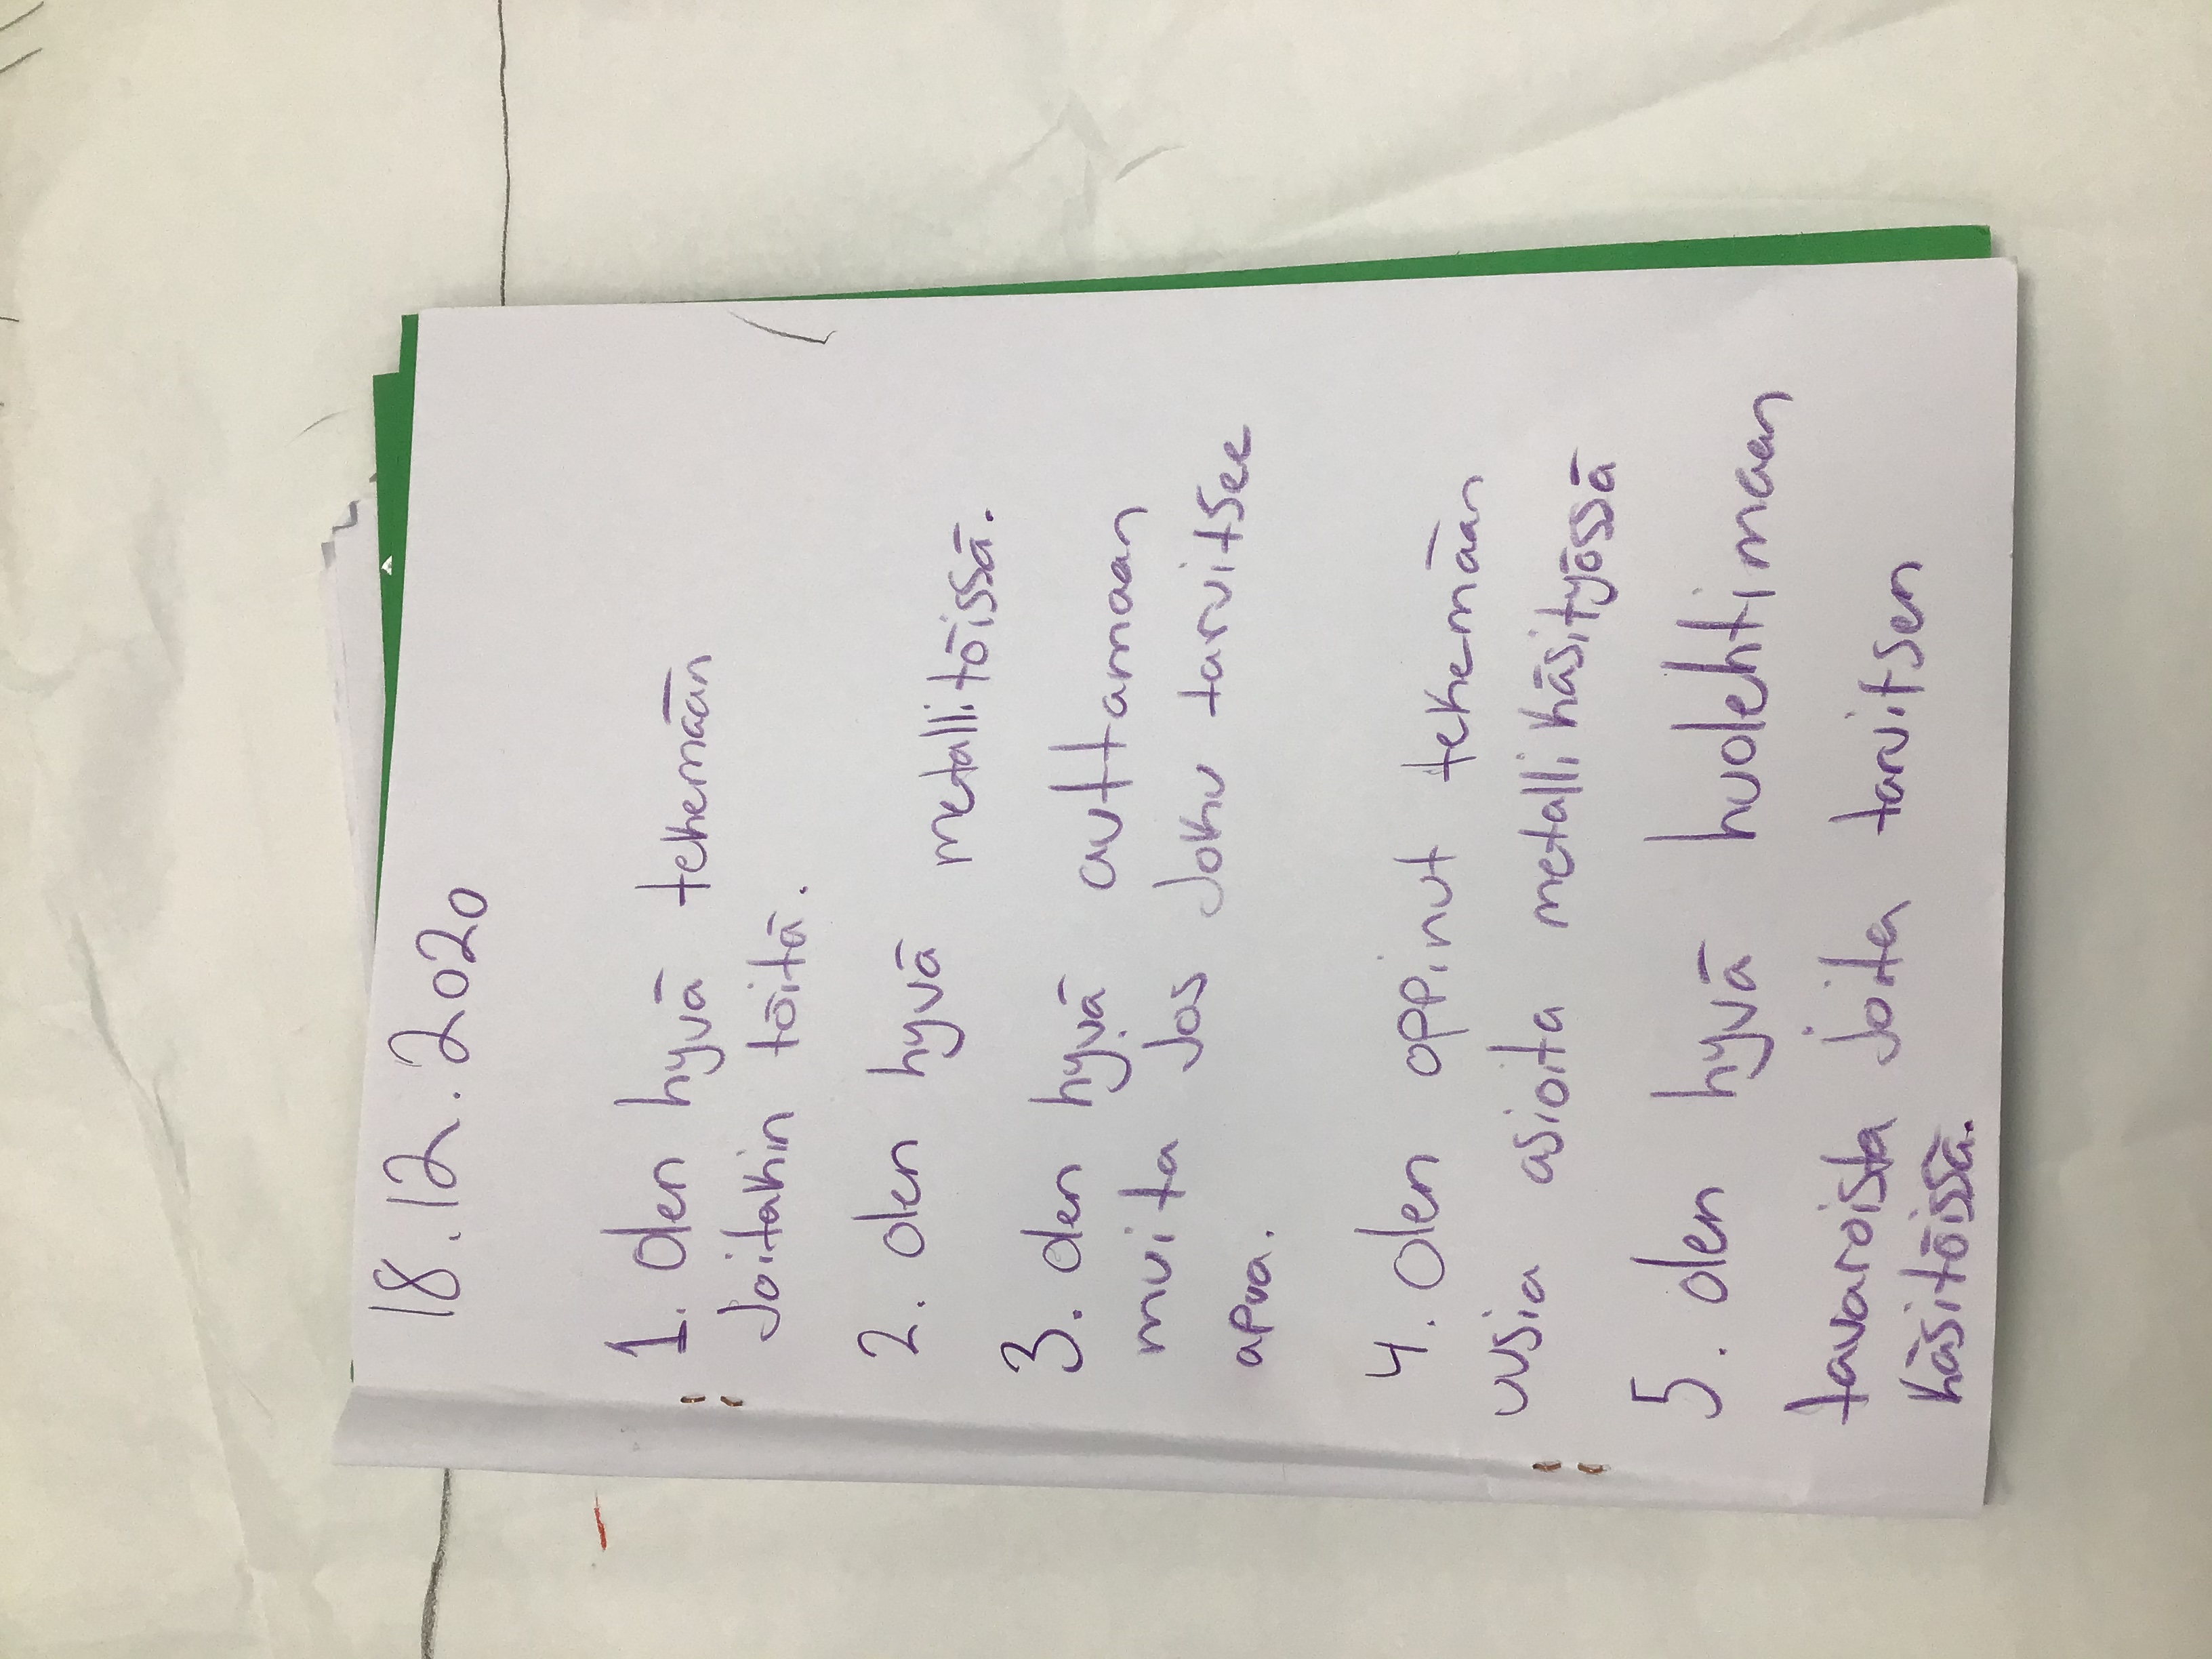 18.12.2020
1. olen hyvä tekemään
Joitakin töitä.
2. olen hyvä metallitöissä.
3. olen hyvä auttamaan
muita Jos Joku tarvitsee
apua.
4. olen oppinut tekemään
uusia asioita metallikäsityössä
5. olen hyvä huolehtimaan
tavaroista joita tarvitsen
käsitöissä.